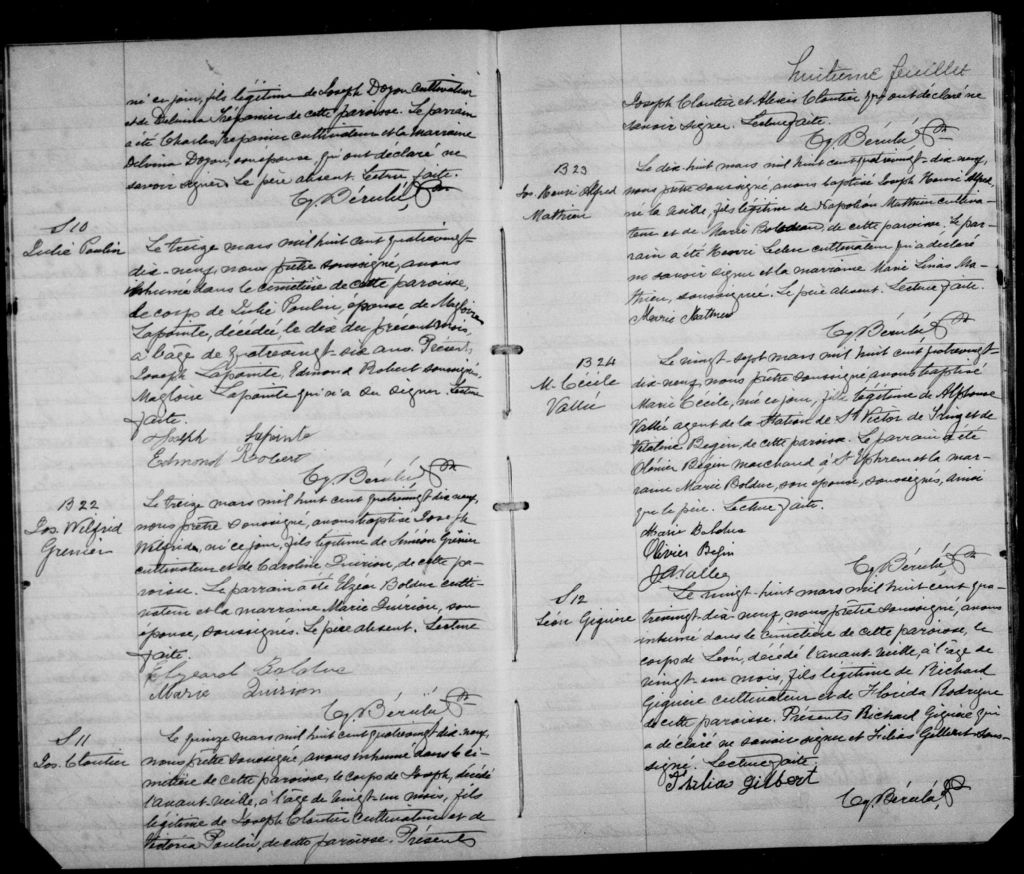 né ce jour, fils légitime de Joseph Doyon cultivateur
et de Delvina Trépanier de cette paroisse. Le parrain
a été Charles Trépanier cultivateur et la marraine
Delvina Doyon, son épouse, qui ont déclaré ne
savoir signer. Le père absent. Lecture faite.
Bérubé Ptre
S10
Julie Poulin
Le treize mars mil huit cent quatrevingt-
dix-neuf, nous prêtre soussigné, avons
inhumé dans le cimetière de cette paroisse,
le corps de Julie Poulin, épouse de Magloire
Lapointe, décédée le dix du présent mois,
à l'âge de quatrevingt-six ans. Présents
Joseph Lapointe, Edmond Robert soussignés,
Magloire Lapointe qui n'a su signer. Lecture
faite.
Joseph Lapointe
Edmond Robert
Bérubé Ptre
B22
Jos. Wilfrid
Grenier
Le treize mars mil huit cent quatrevingt-dix-neuf,
nous prêtre soussigné, avons baptisé Joseph
Wilfrid, né ce jour, fils légitime de Siméon Grenier
cultivateur et de Caroline Quirion, de cette pa-
roisse. Le parrain a été Elzéar Bolduc culti-
vateur et la marraine Marie Quirion, son
épouse, soussignés. Le père absent. Lecture
faite.
Elzearal Bolduc
Marie Quirion
Bérubé Ptre
S11
Jos. Cloutier
Le quinze mars mil huit cent quatrevingt-dix-neuf,
nous prêtre soussigné, avons inhumé dans le ci-
metière de cette paroisse, le corps de Joseph, décédé
l'avant-veille, à l'âge de vingt-un mois, fils
légitime de Joseph Cloutier cultivateur et de
Victoria Poulin, de cette paroisse. Présents
huitième feuillet
Joseph Cloutier et Alexis Cloutier qui ont déclaré ne
savoir signer. Lecture faite.
Bérubé Ptre
B23
Jos. Henri Alfred
Mathieu
Le dix-huit mars mil huit cent quatrevingt-dix-neuf,
nous prêtre soussigné, avons baptisé Joseph Henri Alfred,
né la veille, fils légitime de Napoléon Mathieu cultiva-
teur et de Marie Bilodeau, de cette paroisse. Le par-
rain a été Henri Leclerc cultivateur qui a déclaré
ne savoir signer et la marraine Marie Ma-
thieu, soussignée. Le père absent. Lecture faite.
Marie Mathieu
Bérubé Ptre
B24
M. Cécile
Vallée
Le vingt-sept mars mil huit cent quatrevingt-
dix-neuf, nous prêtre soussigné, avons baptisé
Marie Cécile, née ce jour, fille légitime de Alphonse
Vallée agent de la station de St Victor de Tring et de
Vitaline Bégin de cette paroisse. Le parrain a été
Olivier Bégin marchand à St Ephrem et la mar-
raine Marie Bolduc, son épouse, soussignés, ainsi
que le père. Lecture faite.
Marie Bolduc
Olivier Begin
J A Vallee
Bérubé Ptre
S12
Léon Giguère
Le vingt-huit mars mil huit cent qua-
trevingt-dix-neuf, nous prêtre soussigné, avons
inhumé dans le cimetière de cette paroisse, le
corps de Léon, décédé l'avant-veille, à l'âge de
vingt-un mois, fils légitime de Richard
Giguère cultivateur et de Florida Rodrigue
de cette paroisse. Présents Richard Giguère qui
a déclaré ne savoir signer et Gilbert sous-
signé. Lecture faite.
Gilbert
Bérubé Ptre